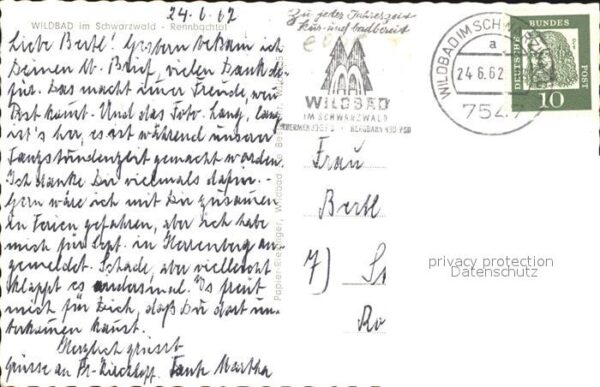 24.6.62
WILDBAD im Schwarzwald - Rennbachtal
Liebe Bertl! Gestern bekam ich
Deinen lb. Brief, vielen Dank da-
für. Das macht einer Freude, wenn
Post kommt. Und das Foto. Lang, lang
ist's her, es ist während unserer
Tanzstundenzeit gemacht worden.
Ich danke Dir vielmals dafür.
Gern wäre ich mit Dir zusammen
in Ferien gefahren, aber ich habe
mich für Sept. in Herrenberg an-
gemeldet. Schade, aber vielleicht
klappt es andersmal. Es freut
mich für Dich, daß Du dort un-
terkommen kannst.
Herzlich grüsst
Grüsse an Tante Martha
Papier-Riexinger, Wildbad
Zu jeder Jahreszeit
kur- und badbereit
WILDBAD
IM SCHWARZWALD
THERMEN BERGBAHN
WILDBAD IM SCHWARZWALD
a
24.6.62
7547
DEUTSCHE BUNDESPOST
10
Frau
Bertl
7) S
Ro
privacy protection
Datenschutz